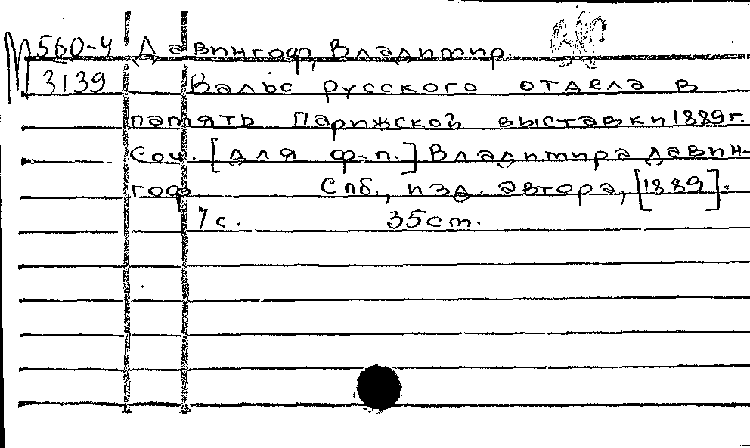 М 560-4 Давингоф, Владимир.
3139 Вальс русского отдела в
память Парижской выставки 1889 г.
Соч. [для ф.-п.] Владимира Давин-
гоф. Спб., изд. автора, [1889].
7 с. 35 cm.